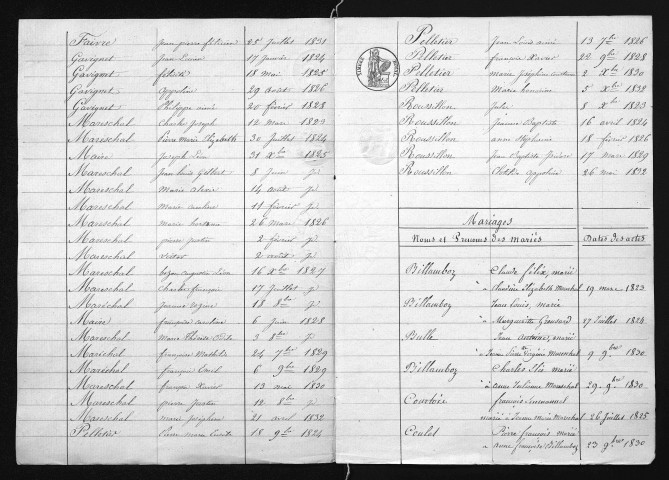 Faivre Jean pierre félicien 25 Juillet 1831
Gavignet Jean Louis 17 Janvier 1824
Gavignet félicité 18 mai 1825
Gavignet Appoline 29 août 1826
Gavignet Philippe aimé 20 février 1828
Mareschal Charles Joseph 12 Mars 1823
Mareschal Pierre Marie Elizabeth 30 Juillet 1824
Maire Joseph 31 Xbre 1825
Mareschal Jean Louis Gilbert 8 Juin
Mareschal Marie 14 août
Mareschal Marie 11 février
Mareschal Marie 26 Mars 1826
Mareschal pierre justin 2 février
Mareschal victor 2 août
Mareschal auguste Léon 16 Xbre 1827
Mareschal Charles françois 17 Juillet
Maréchal Jeanne 18 8bre
Maire françoise 6 Juin 1828
Mareschal Marie Thérèse 3 8bre
Maréchal françoise Mathilde 24 7bre 1829
Mareschal françois Emil 6 9bre 1829
Mareschal françois Xavier 13 mai 1830
Mareschal pierre justin 12 8bre
Mareschal Marie joséphine 21 avril 1832
Pelletier Pierre marie 18 9bre 1824
Pelletier Jean Louis aimé 13 7bre 1826
Pelletier françois Xavier 22 9bre 1828
Pelletier marie Joséphine 2 Xbre 1830
Pelletier Marie 5 Xbre 1832
Roussillon Julie 8 Xbre 1823
Roussillon Jeanne Baptiste 16 avril 1824
Roussillon anne Stéphanie 18 février 1826
Roussillon Jean Baptiste 17 mars 1829
Roussillon Clotilde appoline 26 mai 1832
Mariages
Noms et Prenoms des mariés Dates des actes
Billamboz Claude félix, marié
à Elizabeth Mareschal 19 mars 1823
Billamboz Jean Louis, marié
à Marguerite 27 Juillet 1824
Bulle Jean Antoine, marié
à Virginie Mareschal 9 9bre 1830
Billamboz Charles Elie marié
à anne Mareschal 29 9bre 1830
Courtois françois Emmanuel
marié à Jeanne Marie Mareschal 26 Juillet 1825
Coulet Pierre françois marié
à anne françoise Billamboz 23 9bre 1830